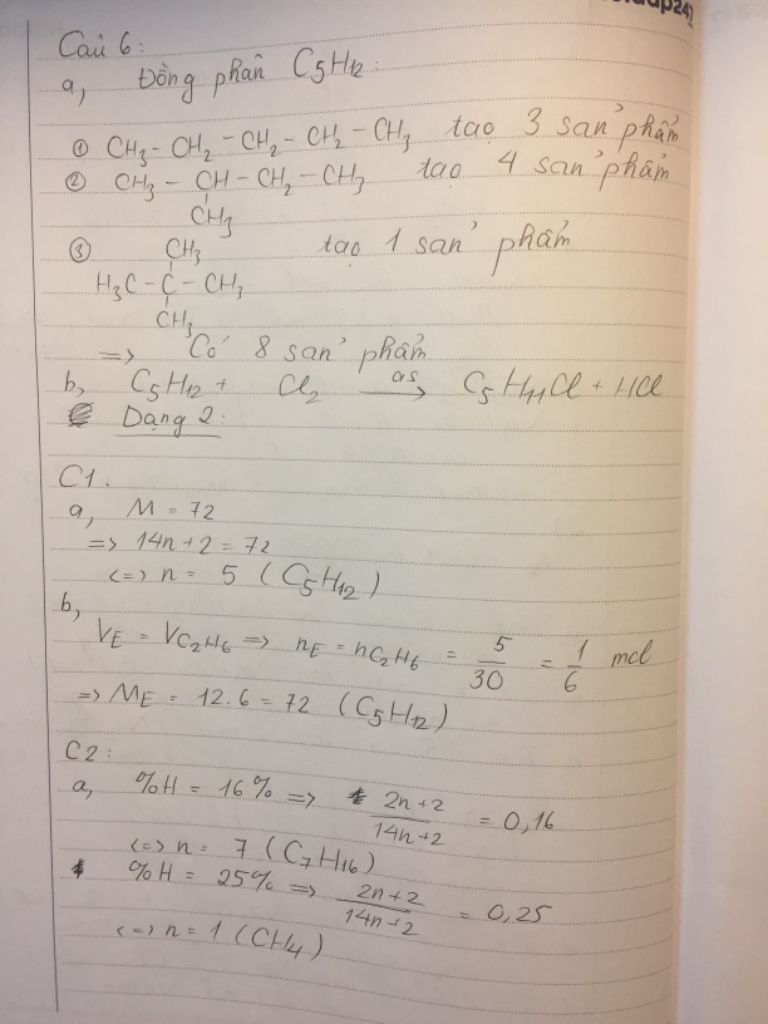 Câu 6:
a, Đồng phân C5H12:
① CH3 - CH2 - CH2 - CH2 - CH3 tạo 3 sản phẩm
② CH3 - CH - CH2 - CH3 tạo 4 sản phẩm
CH3
③ CH3 tạo 1 sản phẩm
H3C - C - CH3
CH3
=> Có 8 sản phẩm
b, C5H12 + Cl2 as → C5H11Cl + HCl
Dạng 2:
C1.
a, M = 72
=> 14n + 2 = 72
<=> n = 5 (C5H12)
b,
VE = VC2H6 => nE = nC2H6 = 5/30 = 1/6 mol
=> ME = 12.6 = 72 (C5H12)
C2:
a, %H = 16% => 2n+2/14n+2 = 0,16
<=> n = 7 (C7H16)
%H = 25% => 2n+2/14n+2 = 0,25
<=> n = 1 (CH4)